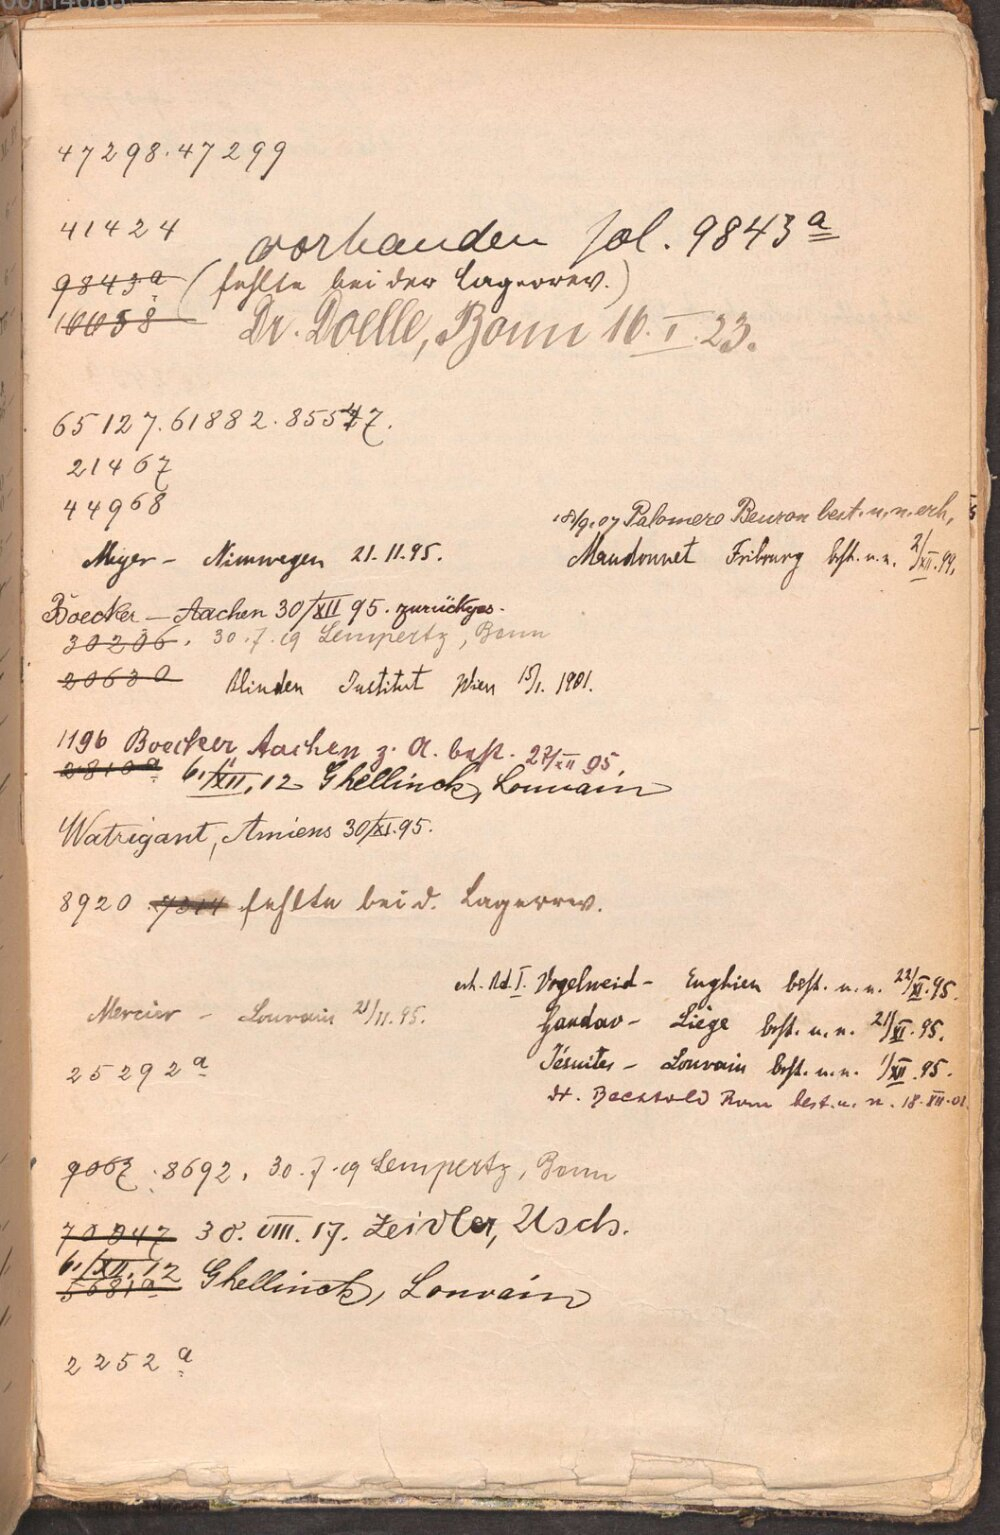 47298. 47299
41424
vorhanden sol. 9843a
9843a (fehlte bei der Lagerrev.)
10058 Dr. Doelle, Bonn 16. I. 23.
65127. 61882. 85547.
21467
44968
18/9.07 Palomero Beuron best. u. n. erh.
Meyer – Nimwegen 21.11.95.
Mandonnet Fribourg best. u. n. 2/XII.99.
Boecker – Aachen 30/XII 95. zurückges.
30206. 30.7.19 Lempertz, Bonn
20630 Blinden Institut Wien 15/1. 1901.
1196 Boecker Aachen z. A. best. 27/XII 95.
2810a 6./XII.12 Ghellinck, Louvain
Watrigant, Amiens 30/XI.95.
8920 fehlte bei d. Lagerrev.
erh. Bd. I. Vogelweid – Enghien best. u. n. 22/XI.95.
Mercier – Louvain 21/11.95.
Gandav – Liège best. u. n. 21/XI.95.
Jésuites – Louvain best. u. n. 1/XII.95.
25292a
dr. Rom best. u. n. 18.XII.01.
9067. 8692. 30.7.19 Lempertz, Bonn
70947 30. VIII. 17. Zeidler, Usch.
6./XII.12
Ghellinck, Louvain
2252a